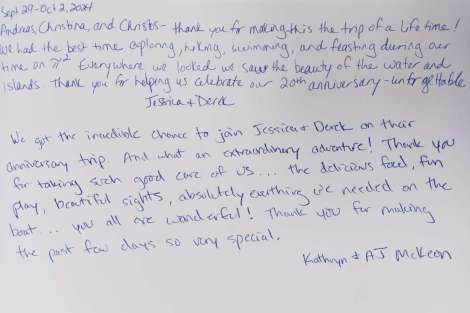 Sept 29-Oct 2, 2024
Andreas, Christina, and Christos- thank you for making this the trip of a lifetime!
We had the best time exploring, hiking, swimming, and feasting during our
time on π². Everywhere we looked we saw the beauty of the water and
islands. Thank you for helping us celebrate our 20th anniversary - unforgettable
Jessica + Derek
We got the incredible chance to join Jessica & Derek on their
anniversary trip. And what an extraordinary adventure! Thank you
for taking such good care of us... the delicious food, fun
play, beautiful sights, absolutely everything we needed on the
boat... you all are wonderful! Thank you for making
the past few days so very special.
Kathryn & AJ McKeon